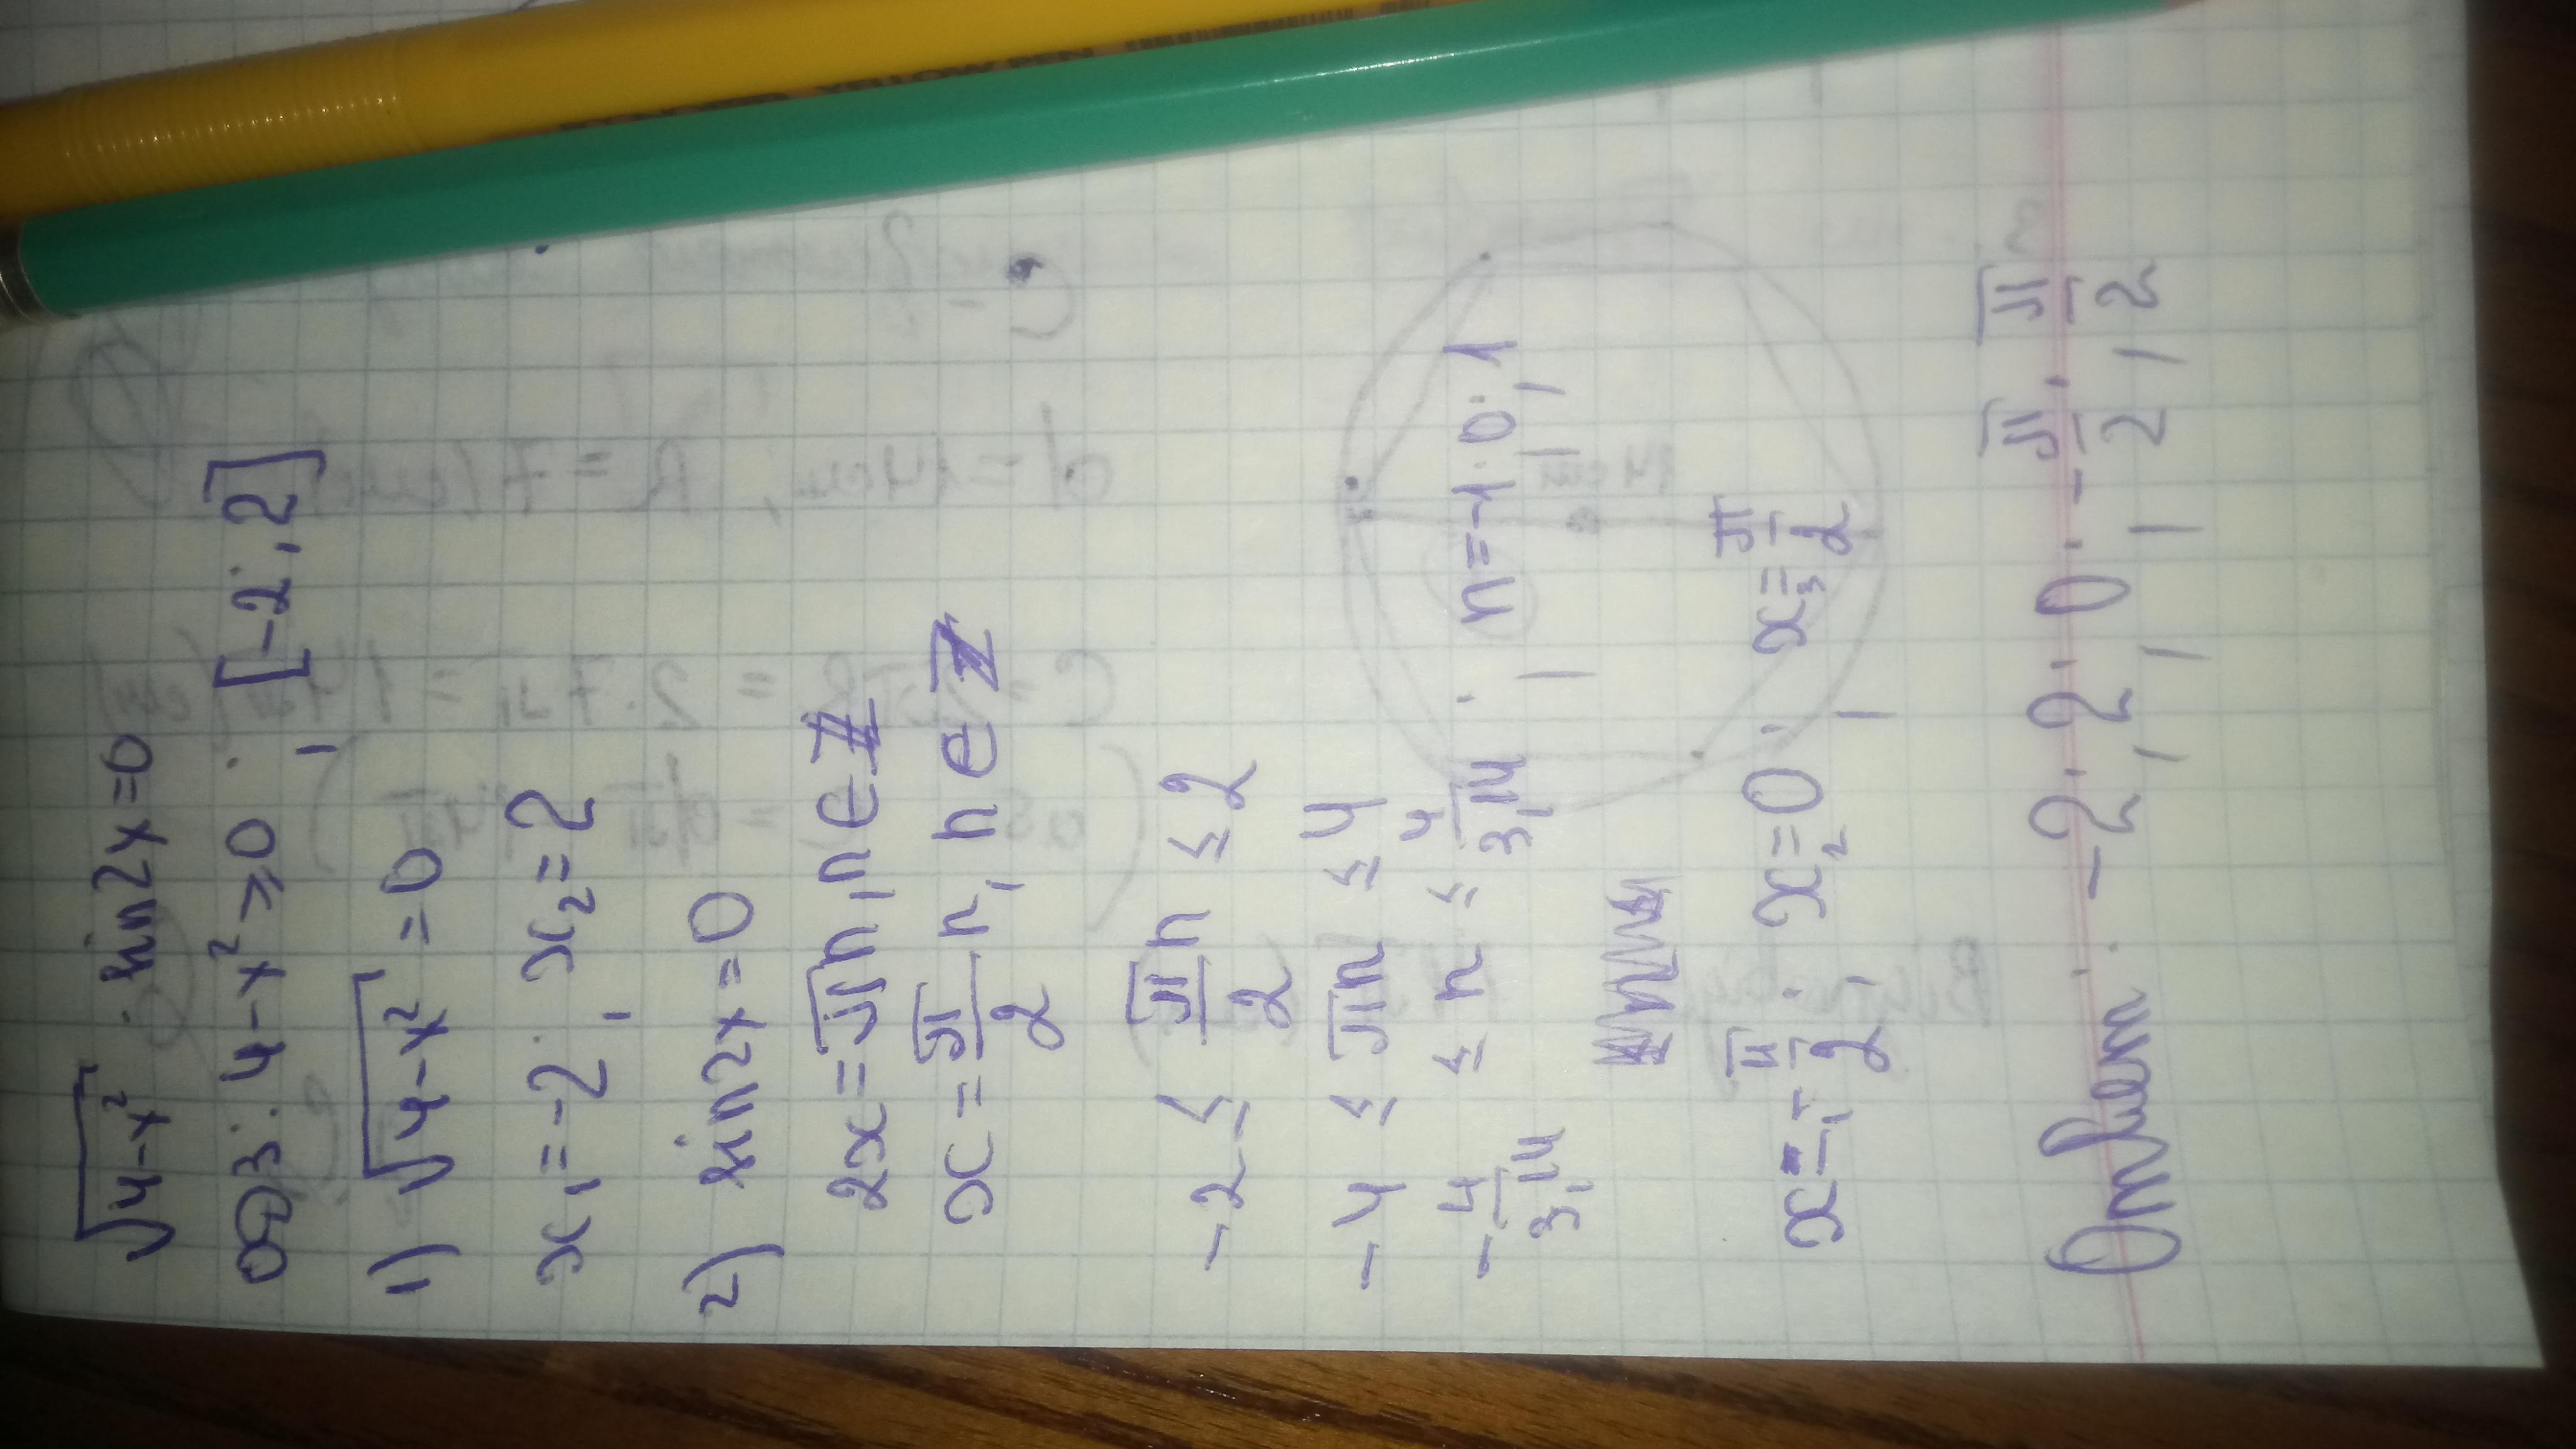 √4-x² · sin2x=0
ОДЗ: 4-x² ≥ 0 ; [-2; 2]
1) √4-x² = 0
x₁=-2; x₂=2
2) sin2x=0
2x=πn, n∈Z
x=π/2 n, n∈Z
-2 ≤ πn/2 ≤ 2
-4 ≤ πn ≤ 4
-4/3,14 ≤ n ≤ 4/3,14 ; n=-1; 0; 1
x₁=-π/2; x₂=0; x₃=π/2
Ответ: -2; 2; 0; -π/2; π/2